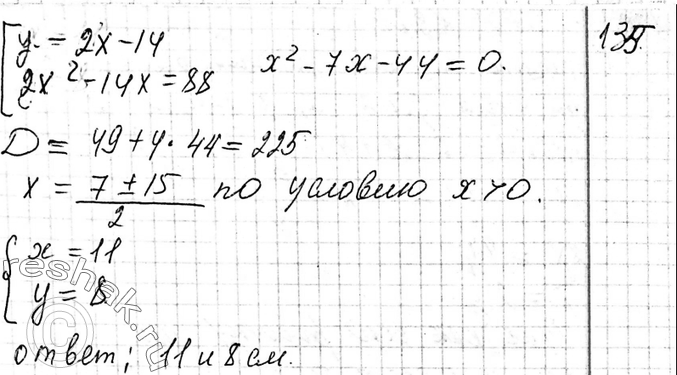 y = 2x - 14
2x² - 14x = 88 x² - 7x - 44 = 0.
D = 49 + 4 · 44 = 225
x = (7 ± 15)/2 по условию x > 0.
x = 11
y = 8
ответ; 11 и 8 см.
reshak.ru